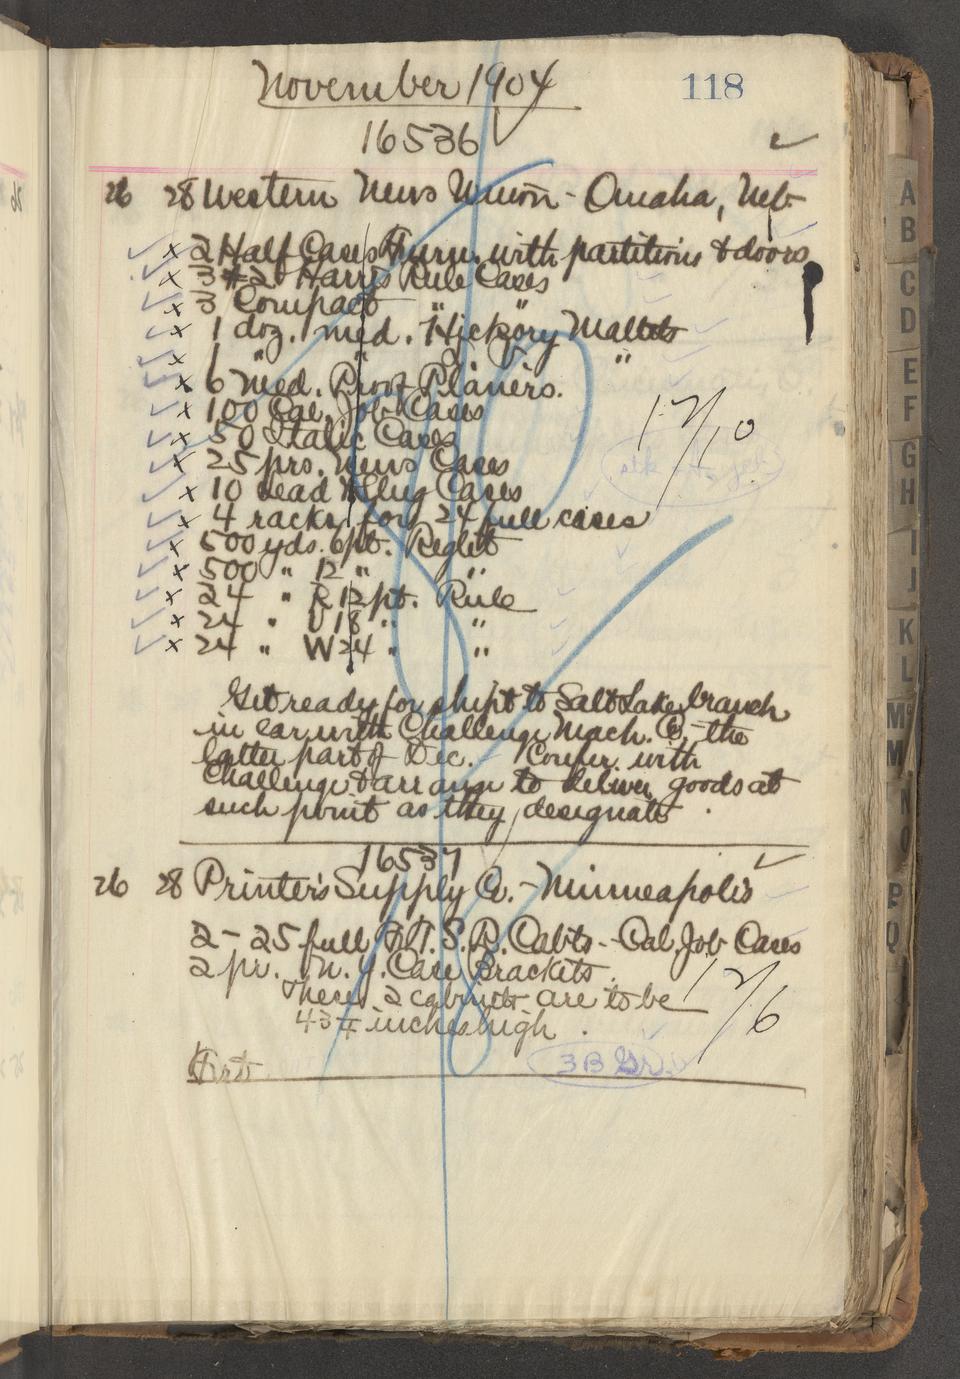 November 1904
118
16536
26 28 Western News Union - Omaha, Neb.
x 2 Half Cases Furn. with partitions & doors
x 3 #2 Harris Rule Cases
x 3 Compact " "
x 1 doz. 1 med. Hickory Mallets
x 1 " " "
x 6 Med. Proof Planers.
x 100 Cal. Job Cases
x 50 Italic Cases
x 25 prs. News Cases
x 10 Lead & Slug Cases
x 4 racks for 24 full cases
x 500 yds. 6pt. Reglet
x 500 " 12 " "
x 24 " R12pt. Rule
x 24 " U18 " "
x 24 " W24 " "
12/10
Get ready for shipt to Salt Lake branch
in car with Challenge Mach. Co. the
latter part of Dec. - Confer with
Challenge & arrange to deliver goods at
such point as they designate.
16537
26 28 Printer's Supply Co. - Minneapolis
2 - 25 full S. R. Cabts - Cal Job Cases
2 pr. N.Y. Case Brackets.
These 2 cabinets are to be
43 inches high.
12/6
3B
A
B
C
D
E
F
G
H
I
J
K
L
M
M
N
O
P
Q